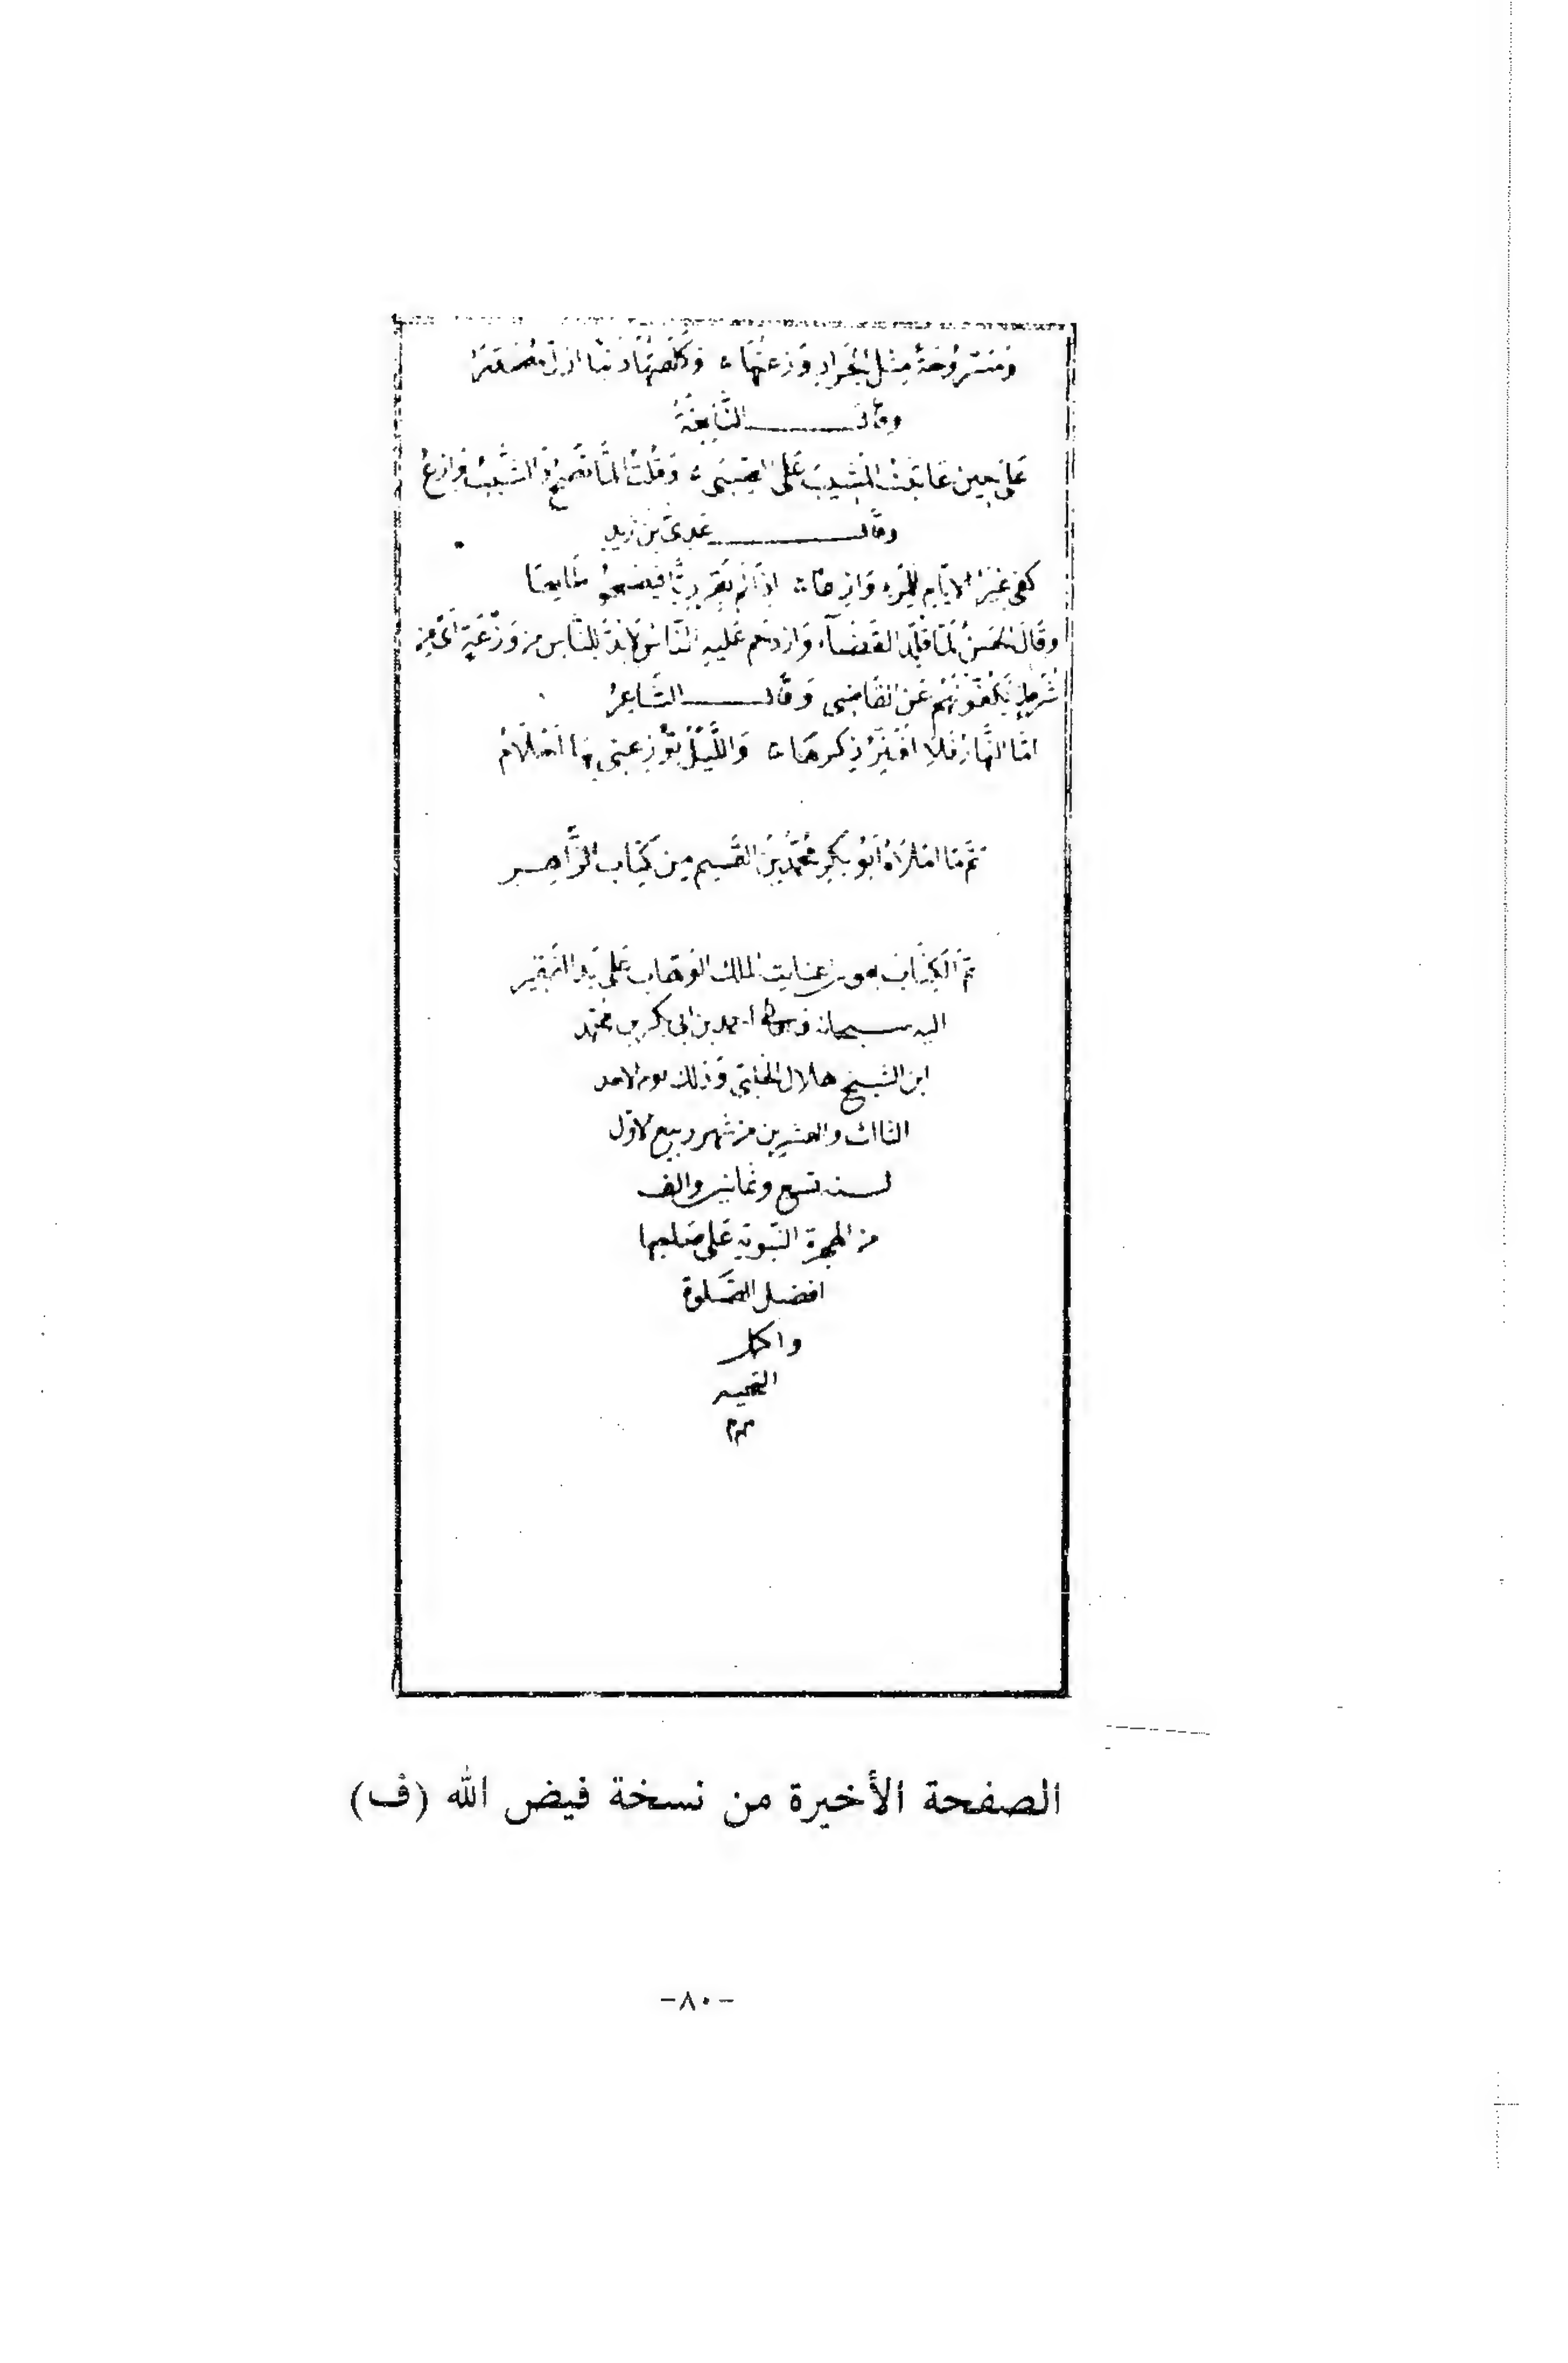 وَمَسْرُوحَةٍ مِثْلَ الجَرَادِ وَزَعْتُهَا وَكَلَّفْتُهَا ذِئْبًا ازَلَّ مُصَدَّرًا
وقال النَّابِغَةُ
عَلَى حِينَ عَاتَبْتُ المَشِيبَ عَلَى الصِّبَى وَقُلْتُ المَّا تَصْحُ وَالشَّيْبُ وَازِعُ
وقال عَدِيّ بن زَيدٍ
كفى غِيَرُ الايَّامِ لِلْمَرْءِ وَازِعًا اِذَا لَمْ يَقِرْ رِيًّا فَيَصْحُو طَايِعًا
وقَالَ الحَسَنُ لَمَّا قُلِّدَ القَضَآءَ وَازدحم عَلَيْهِ النَّاسُ لَابُدَّ لِلنَّاسِ من وَزَعَةٍ اَىْ من
شُرَطٍ يَكُفُّونَهُمْ عَنِ القَاضِي وَقَال الشَّاعِرُ
امَّا النَّهَارُ فَلَا اُفَتِّرُ ذِكرهَا وَاللَّيْلُ يُوزِعني بِهَا اَحْلَامُ
تَمَّ مَا امْلَاهُ اَبُو بَكْرٍ مُحَمَّدُ بْنُ القسِم مِنْ كِتَابِ الزَّاهِر
تَمَّ الكِتَاب بعون عنايت الملك الوهاب عَلَى يَد الفَقِير
اليه سبحانه وتعالى احمد بن ابى بكر بن محمّد
ابن الشيخ هلال الحلبي وَذلك يوم الاحد
الثالث والعشرين من شهر ربيع الاوّل
لسنه تسع وثمانين والف
من الهجرة النبّويه عَلى صَاحبها
افضل الصَّلوة
واكمل
التحيه
م م م
الصفحة الأخيرة من نسخة فيض الله (ف)
-٨٠-